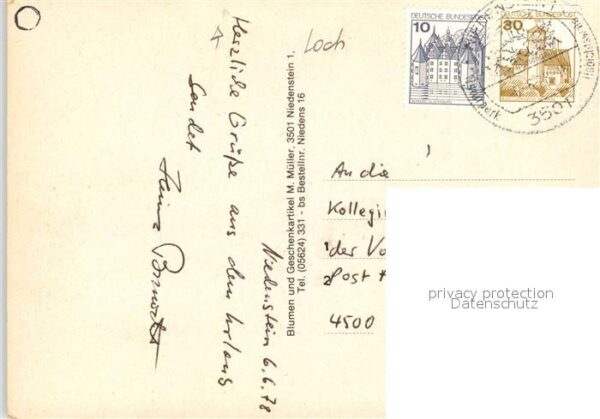 Loch
Niedenstein 6.6.78
Herzliche Grüße aus dem Urlaub
sendet
Blumen und Geschenkartikel M. Müller, 3501 Niedenstein 1.
Tel. (05624) 331 - bs Bestellnr. Niedens 16
10
DEUTSCHE BUNDESPOST
30
DEUTSCHE BUNDESPOST
3501
An die
Kollegi
1 der Vo
2 Post
4500
privacy protection
Datenschutz